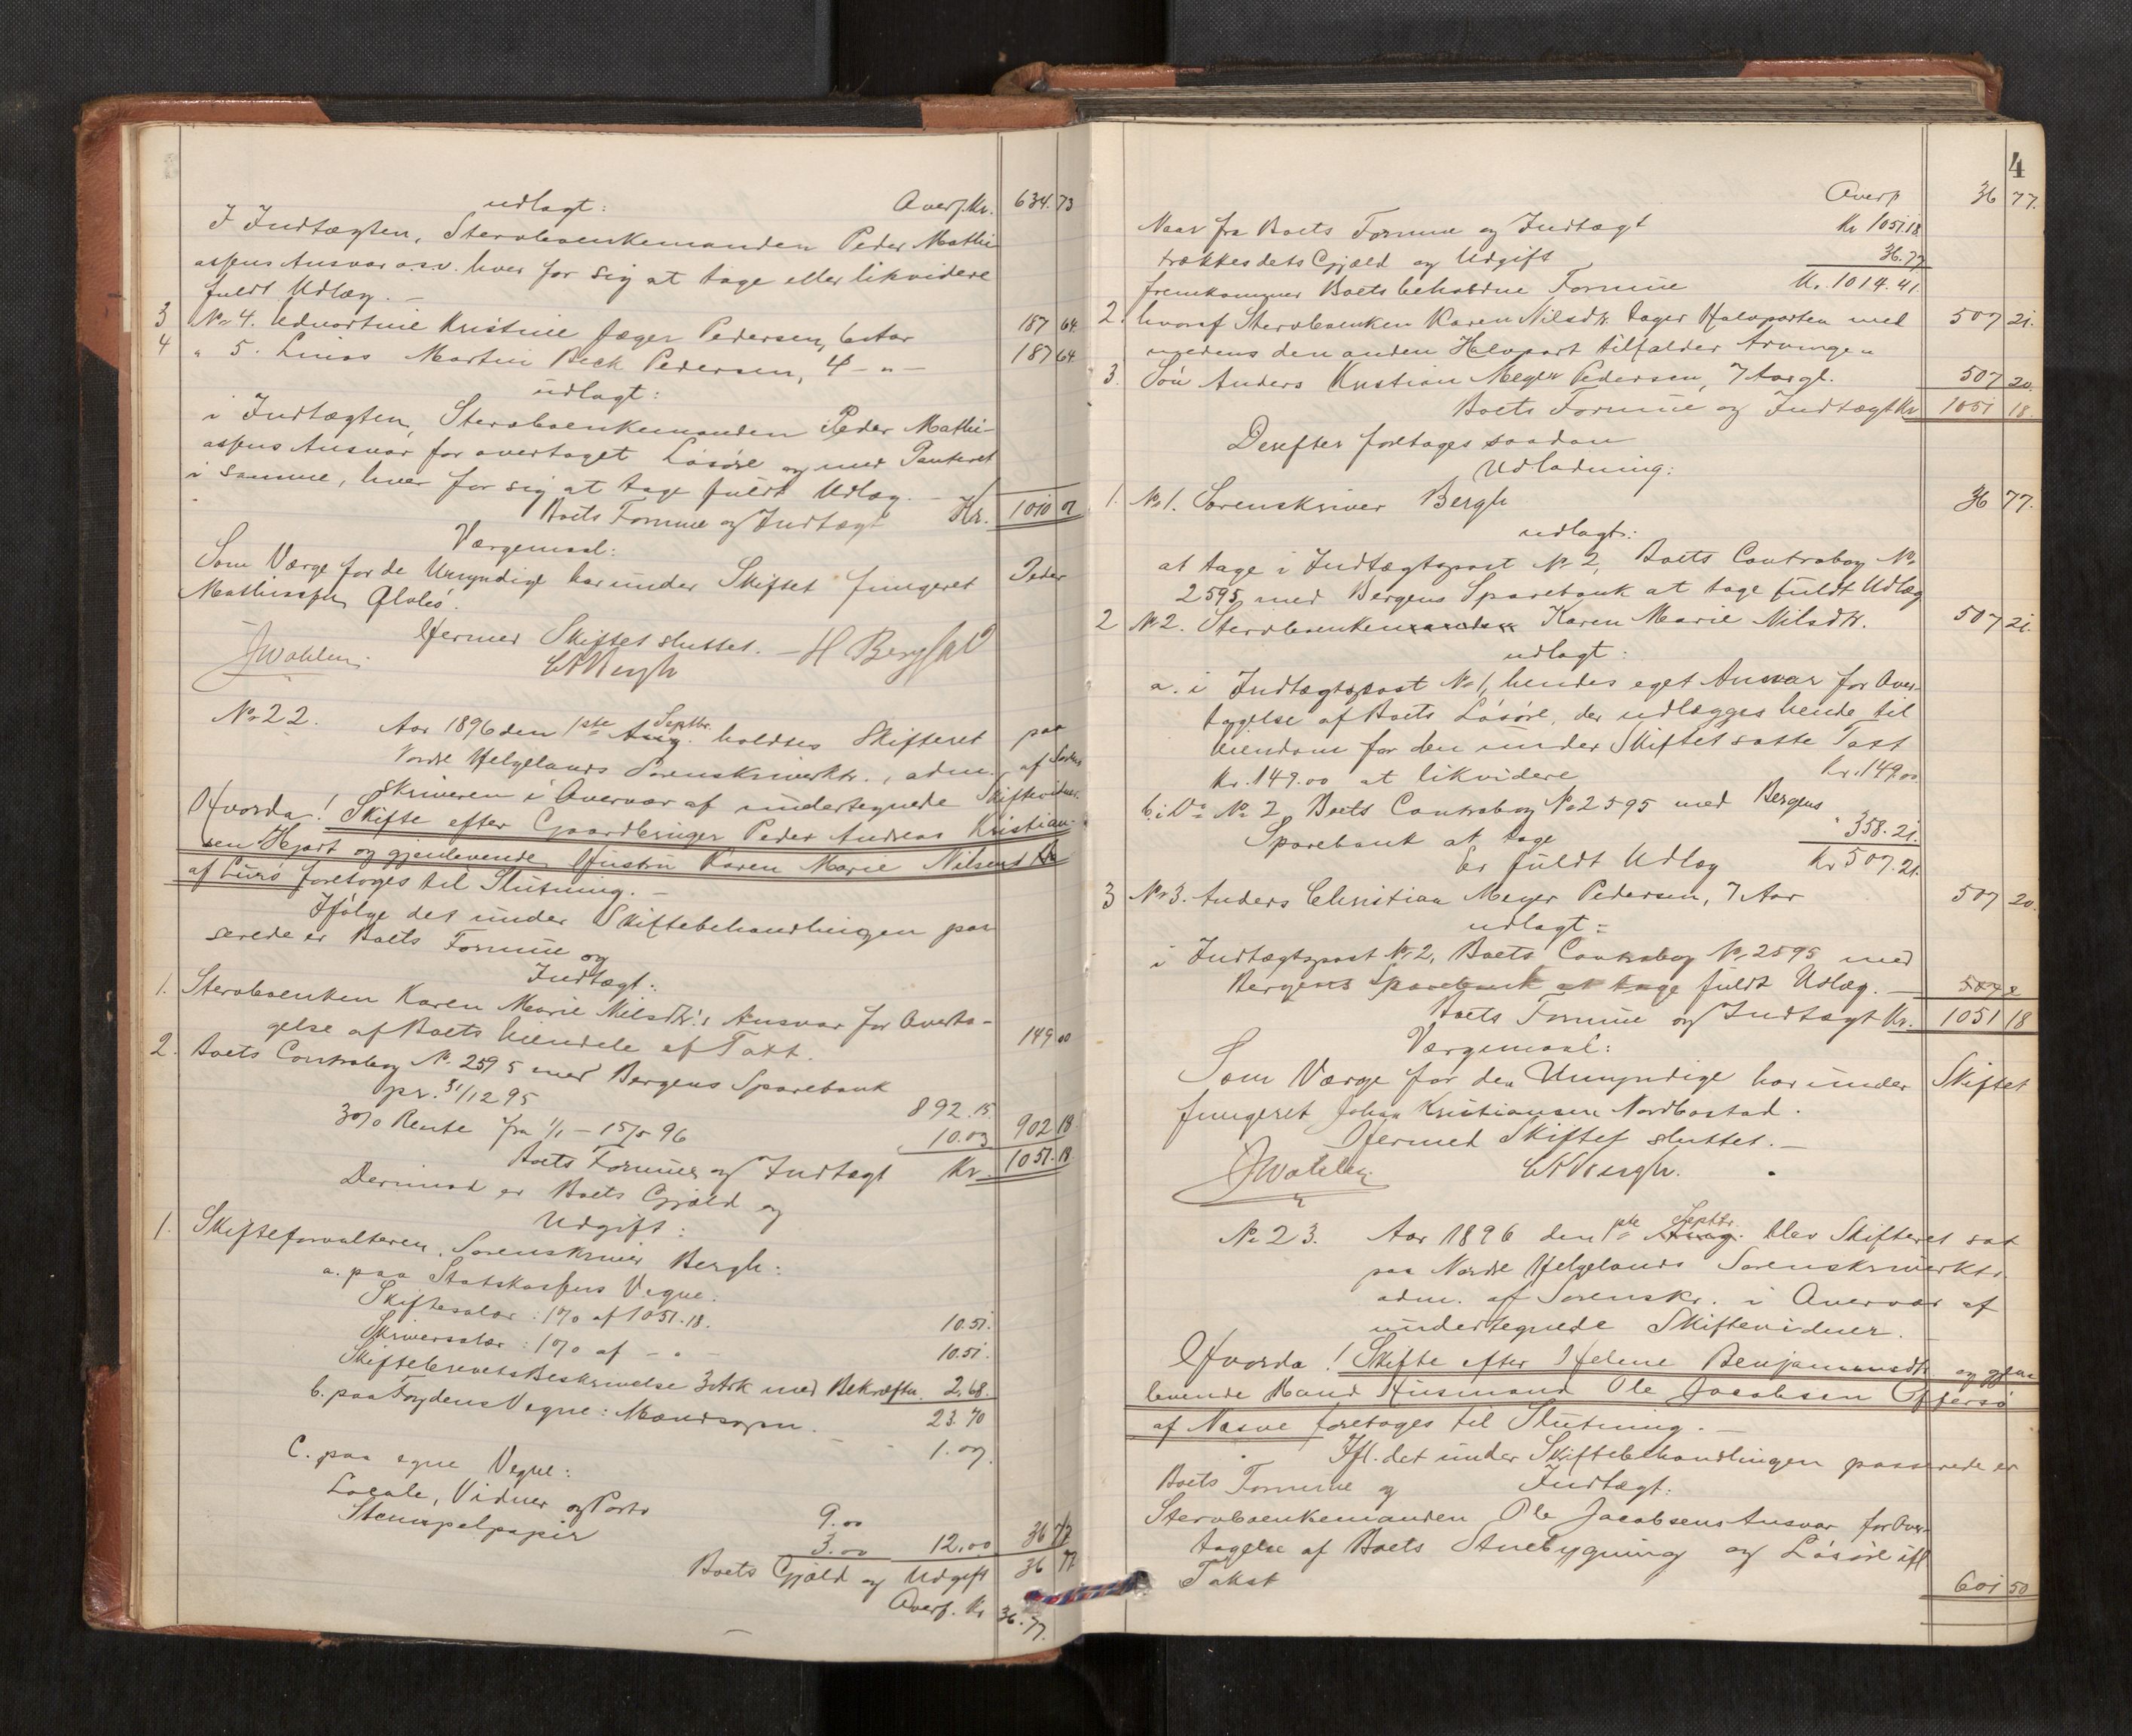 udlagt: Overf. Kr. 634.73
I Indtægten, Sterboenkemanden Peder Mathi-
assens Ansvar o.s.v. hver for sig at tage eller likvidere
fuldt Udlæg. –
3 No 4. Edvartine Kristine Jæger Pedersen, 6 Aar 187 64
4 " 5. Linas Martin Beck Pedersen, 4 - " - 187 64
udlagt:
i Indtægten, Sterboenkemanden Peder Mathi-
assens Ansvar for overtaget Løsøre og med Panteret
i samme, hver for sig at tage fuldt Udlæg. –
Boets Formue og Indtægt Kr. 1010 01
Værgemaal:
Som Værge for de Umyndige har under Skiftet fungeret Peder
Mathiassen
Hermed Skiftet sluttet. –
JWahlen. CABergh H Berg
No 22. Aar 1896 den 1ste Aug. Septbr. holdtes Skifteret paa
Nordre Helgelands Sorenskriverktr., adm. af Soren-
skriveren i Overvær af undertegnede Skiftevidner.
Hvorda! Skifte efter Gaardbruger Peder Andreas Kristian-
sen Hjort og gjenlevende Hustru Karen Marie Nilsens Dtr.
af Lurø foretoges til Slutning. –
Ifølge det under Skiftebehandlingen pas-
serede er Boets Formue og
Indtægt:
1. Sterboenken Karen Marie Nilsdtr.'s Ansvar for Overta-
gelse af Boets Eiendele ef. Taxt. 149 00
2. Boets Contrabog No. 2595 med Bergens Sparebank
pr. 31/12 95 892.15
3% Rente fra 1/1 – 15/5 96 10.03 902 18
Boets Formue og Indtægt Kr. 1051.18
Derimod er Boets Gjæld og
Udgift:
1. Skifteforvalteren, Sorenskriver Bergh:
a. paa Statskassens Vegne:
Skiftesalær: 1% af 1051.18. 10.51.
Skriversalær: 1% af - " - 10.51.
Skiftebrevets Beskrivelse 3 Ark med Bekræftn. 2.68.
23.70
b. paa Fogdens Vegne: Mandsopn. 1.07.
C. paa egne Vegne:
Locale, Vidner og Porto 9.00
Stempelpapir 3.00 12.00 36 77
Boets Gjæld og Udgift 36 77
Overf. Kr 36.77.
4
Overf 36 77.
Naar fra Boets Formue og Indtægt Kr 1051.18
trækkes dets Gjæld og Udgift 36.77
fremkommer Boets beholdne Formue Kr. 1014.41
2. hvoraf Sterboenken Karen Nilsdtr. tager Halvparten med 507 21.
medens den anden Halvpart tilfalder Arvingen
3. Søn Anders Kristian Meyer Pedersen, 7 Aar gl. 507 20.
Boets Formue og Indtægt Kr 1051 18.
Derefter foretages saadan
Udlodning:
1. No 1. Sorenskriver Bergh 36 77.
udlagt:
at tage i Indtægtspost No 2, Boets Contrabog No
2595, med Bergens Sparebank at tage fuldt Udlæg
2 No 2. Sterboenkemanden Karen Marie Nilsdtr. 507 21.
udlagt:
a. i Indtægtspost No 1, hendes eget Ansvar for Over-
tagelse af Boets Løsøre, der udlægges hende til
Eiendom for den under Skiftet satte Taxt
Kr. 149.00 at likvidere Kr. 149.00
b. i Do No 2, Boets Contrabog No 2595 med Bergens
Sparebank at tage " 358.21.
Er fuldt Udlæg Kr 507.21.
3 No 3. Anders Christian Meyer Pedersen, 7 Aar 507 20.
udlagt:
i Indtægtspost No 2, Boets Contrabog No 2595 med
Bergens Sparebank at tage fuldt Udlæg. –
Boets Formue og Indtægt Kr. 1051 18
Værgemaal:
Som Værge for den Umyndige har under Skiftet
fungeret Johan Kristiansen Nordbostad.
Hermed Skiftet sluttet. –
JWahlen CABergh.
No 23. Aar 1896 den 1ste Aug. Septbr. blev Skifteret sat
paa Nordre Helgelands Sorenskriverktr.
adm. af Sorenskr. i Overvær af
undertegnede Skiftevidner.
Hvorda! Skifte efter Helene Benjaminsdtr. og gjen-
levende Mand Husmand Ole Jacobsen
af Nesne foretoges til Slutning. –
Ifl. det under Skiftebehandlingen passerede er
Boets Formue og Indtægt:
Sterboenkemanden Ole Jacobsens Ansvar for Over-
tagelse af Boets Stuebygning og Løsøre ifl
Takst 601 50